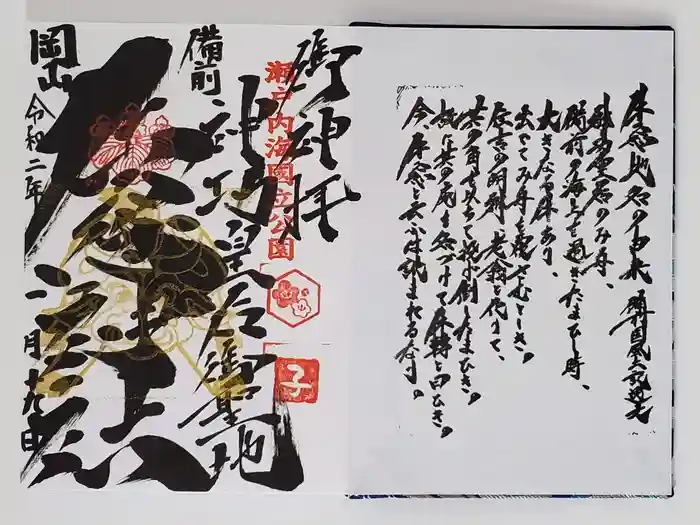 牛窓地名の由来 備前国風土記逸文
神功皇后のみ舟、
備前の海上を過ぎたまひし時、
大きなる牛あり、
出でてみ舟を覆さむとしき。
住吉の明神、老翁と化りて、
其の角をもちて投げ倒したまひき。
故に其の処を名づけて牛転と曰ひき。
今、牛窓と云ふは訛まれるなり。
神拝
瀬戸内海國立公園
子
備前
神功皇后御基地
岡山
令和二年 月 九日